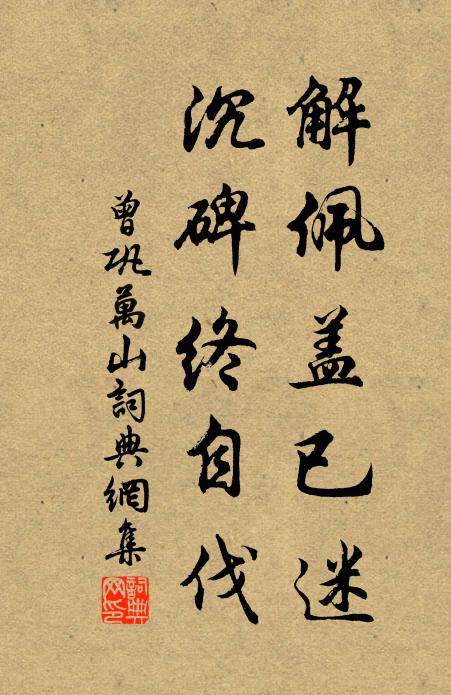 解佩盖已迷
沉碑终自伐
曾巩萬山詞典網集
詞典网印